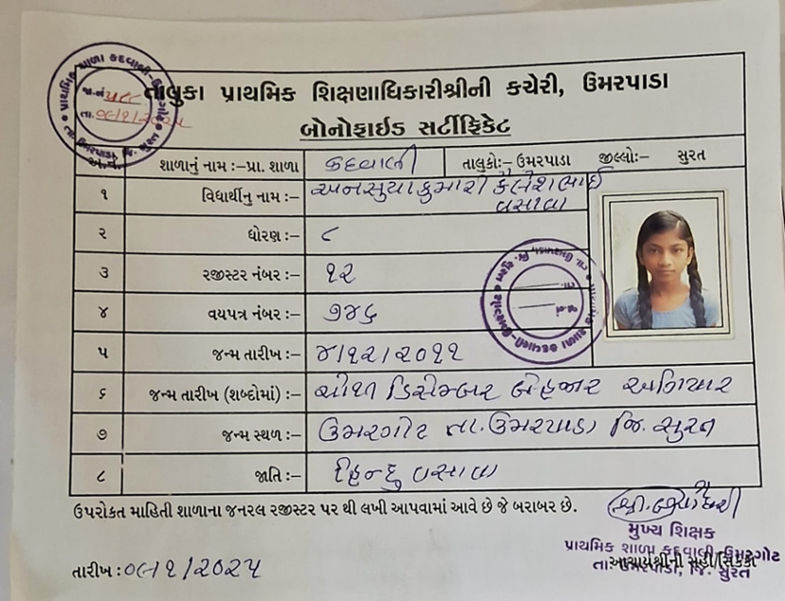 તાલુકા પ્રાથમિક શિક્ષણાધિકારીશ્રીની કચેરી, ઉમરપાડા
બોનોફાઇડ સર્ટીફિકેટ
અ.નં. શાળાનું નામ :-પ્રા. શાળા કદવાલી તાલુકો:- ઉમરપાડા જીલ્લો:- સુરત
૧ વિધાર્થીનુ નામ :- અનસુયાકુમારી શૈલેશભાઈ
વસાવા
૨ ધોરણ :- ૮
૩ રજીસ્ટર નંબર :- ૧૨
૪ વયપત્ર નંબર :- ૭૪૬
૫ જન્મ તારીખ :- ૪/૧૨/૨૦૧૧
૬ જન્મ તારીખ (શબ્દોમાં) :- ચોથી ડિસેમ્બર બેહજાર અગિયાર
૭ જન્મ સ્થળ :- ઉમરગોટ તા. ઉમરપાડા જિ. સુરત
૮ જાતિ :- હિન્દુ વસાવા
ઉપરોકત માહિતી શાળાના જનરલ રજીસ્ટર પર થી લખી આપવામાં આવે છે જે બરાબર છે.
મુખ્ય શિક્ષક
પ્રાથમિક શાળા કદવાલી-ઉમરગોટ
તા. ઉમરપાડા, જિ. સુરત
આચાર્યશ્રીની સહી/સિક્કો
તારીખ :